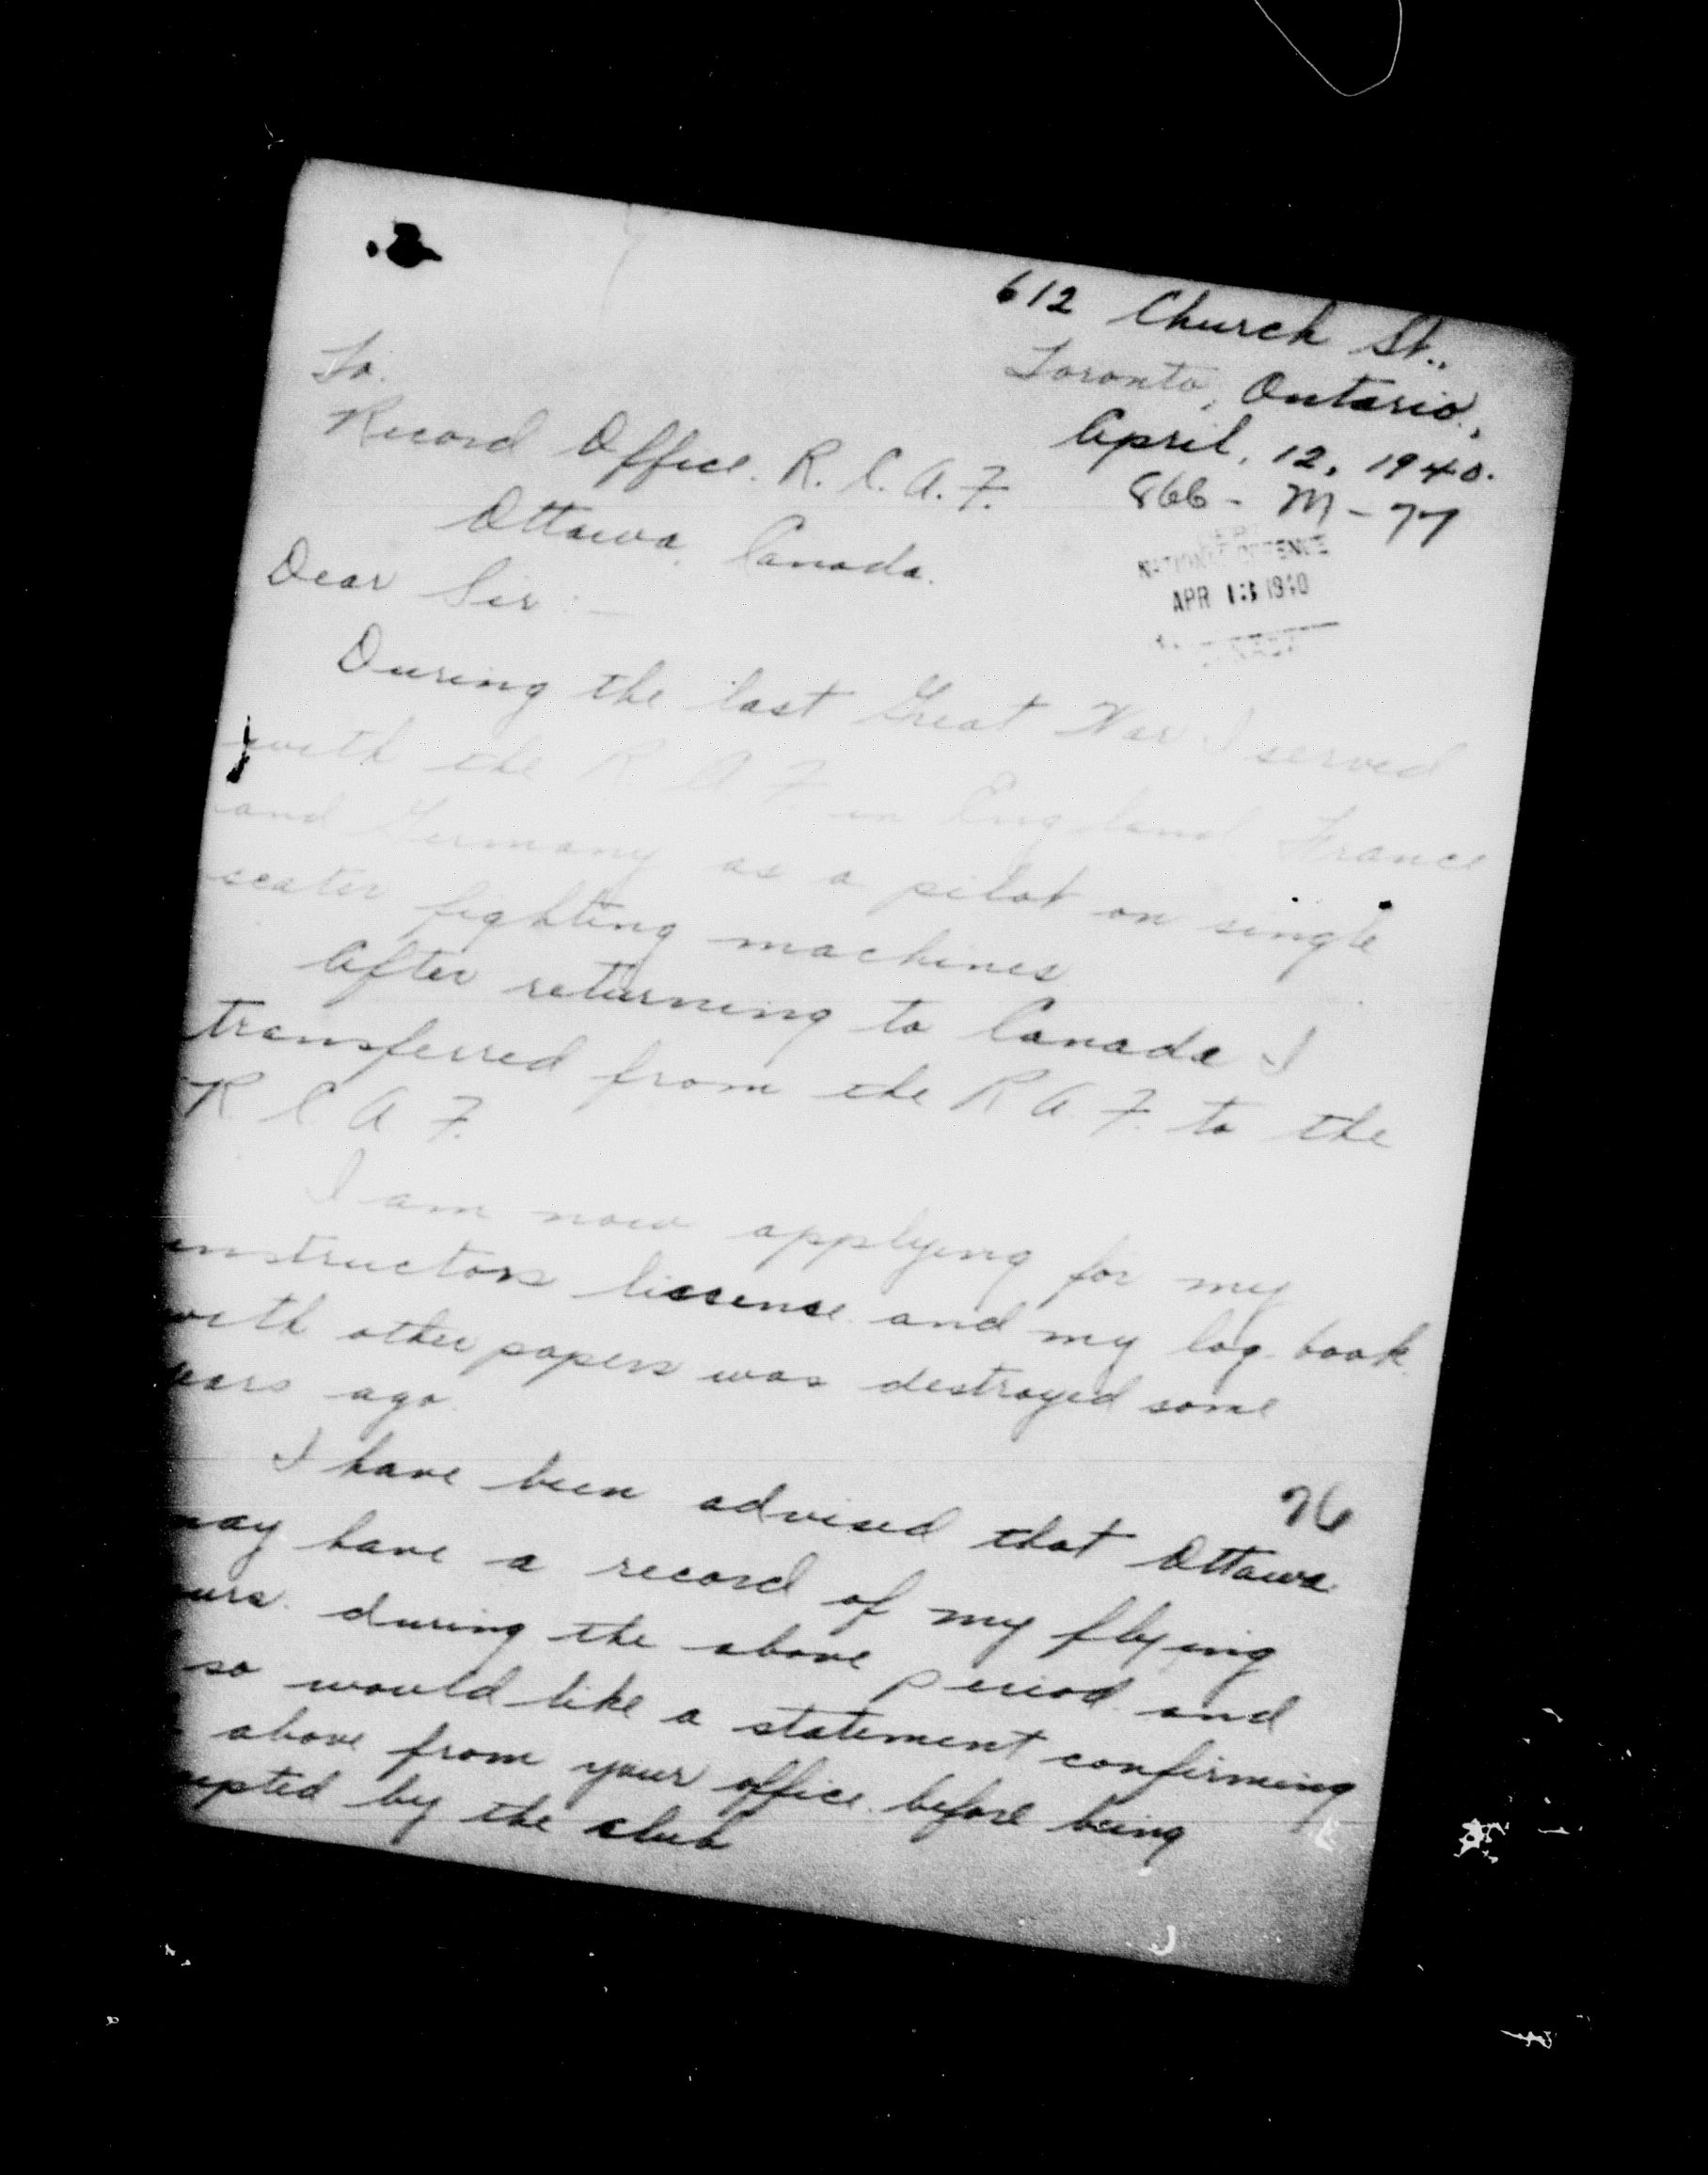 612 Church St.,
Toronto, Ontario,
April, 12, 1940.
866 - M - 77
To.
Record Office. R.C.A.F.
Ottawa, Canada.
NATIONAL DEFENCE
APR 13 1940
Dear Sir: -
During the last Great War I served
with the R.A.F. in England, France
and Germany as a pilot on single
seater fighting machines
After returning to Canada I
transferred from the R.A.F. to the
R.C.A.F.
I am now applying for my
instructors lissense and my log book
with other papers was destroyed some
ears ago.
76
I have been advised that Ottawa
may have a record of my flying
urs. during the above period and
so would like a statement confirming
above from your office before being
epted by the club